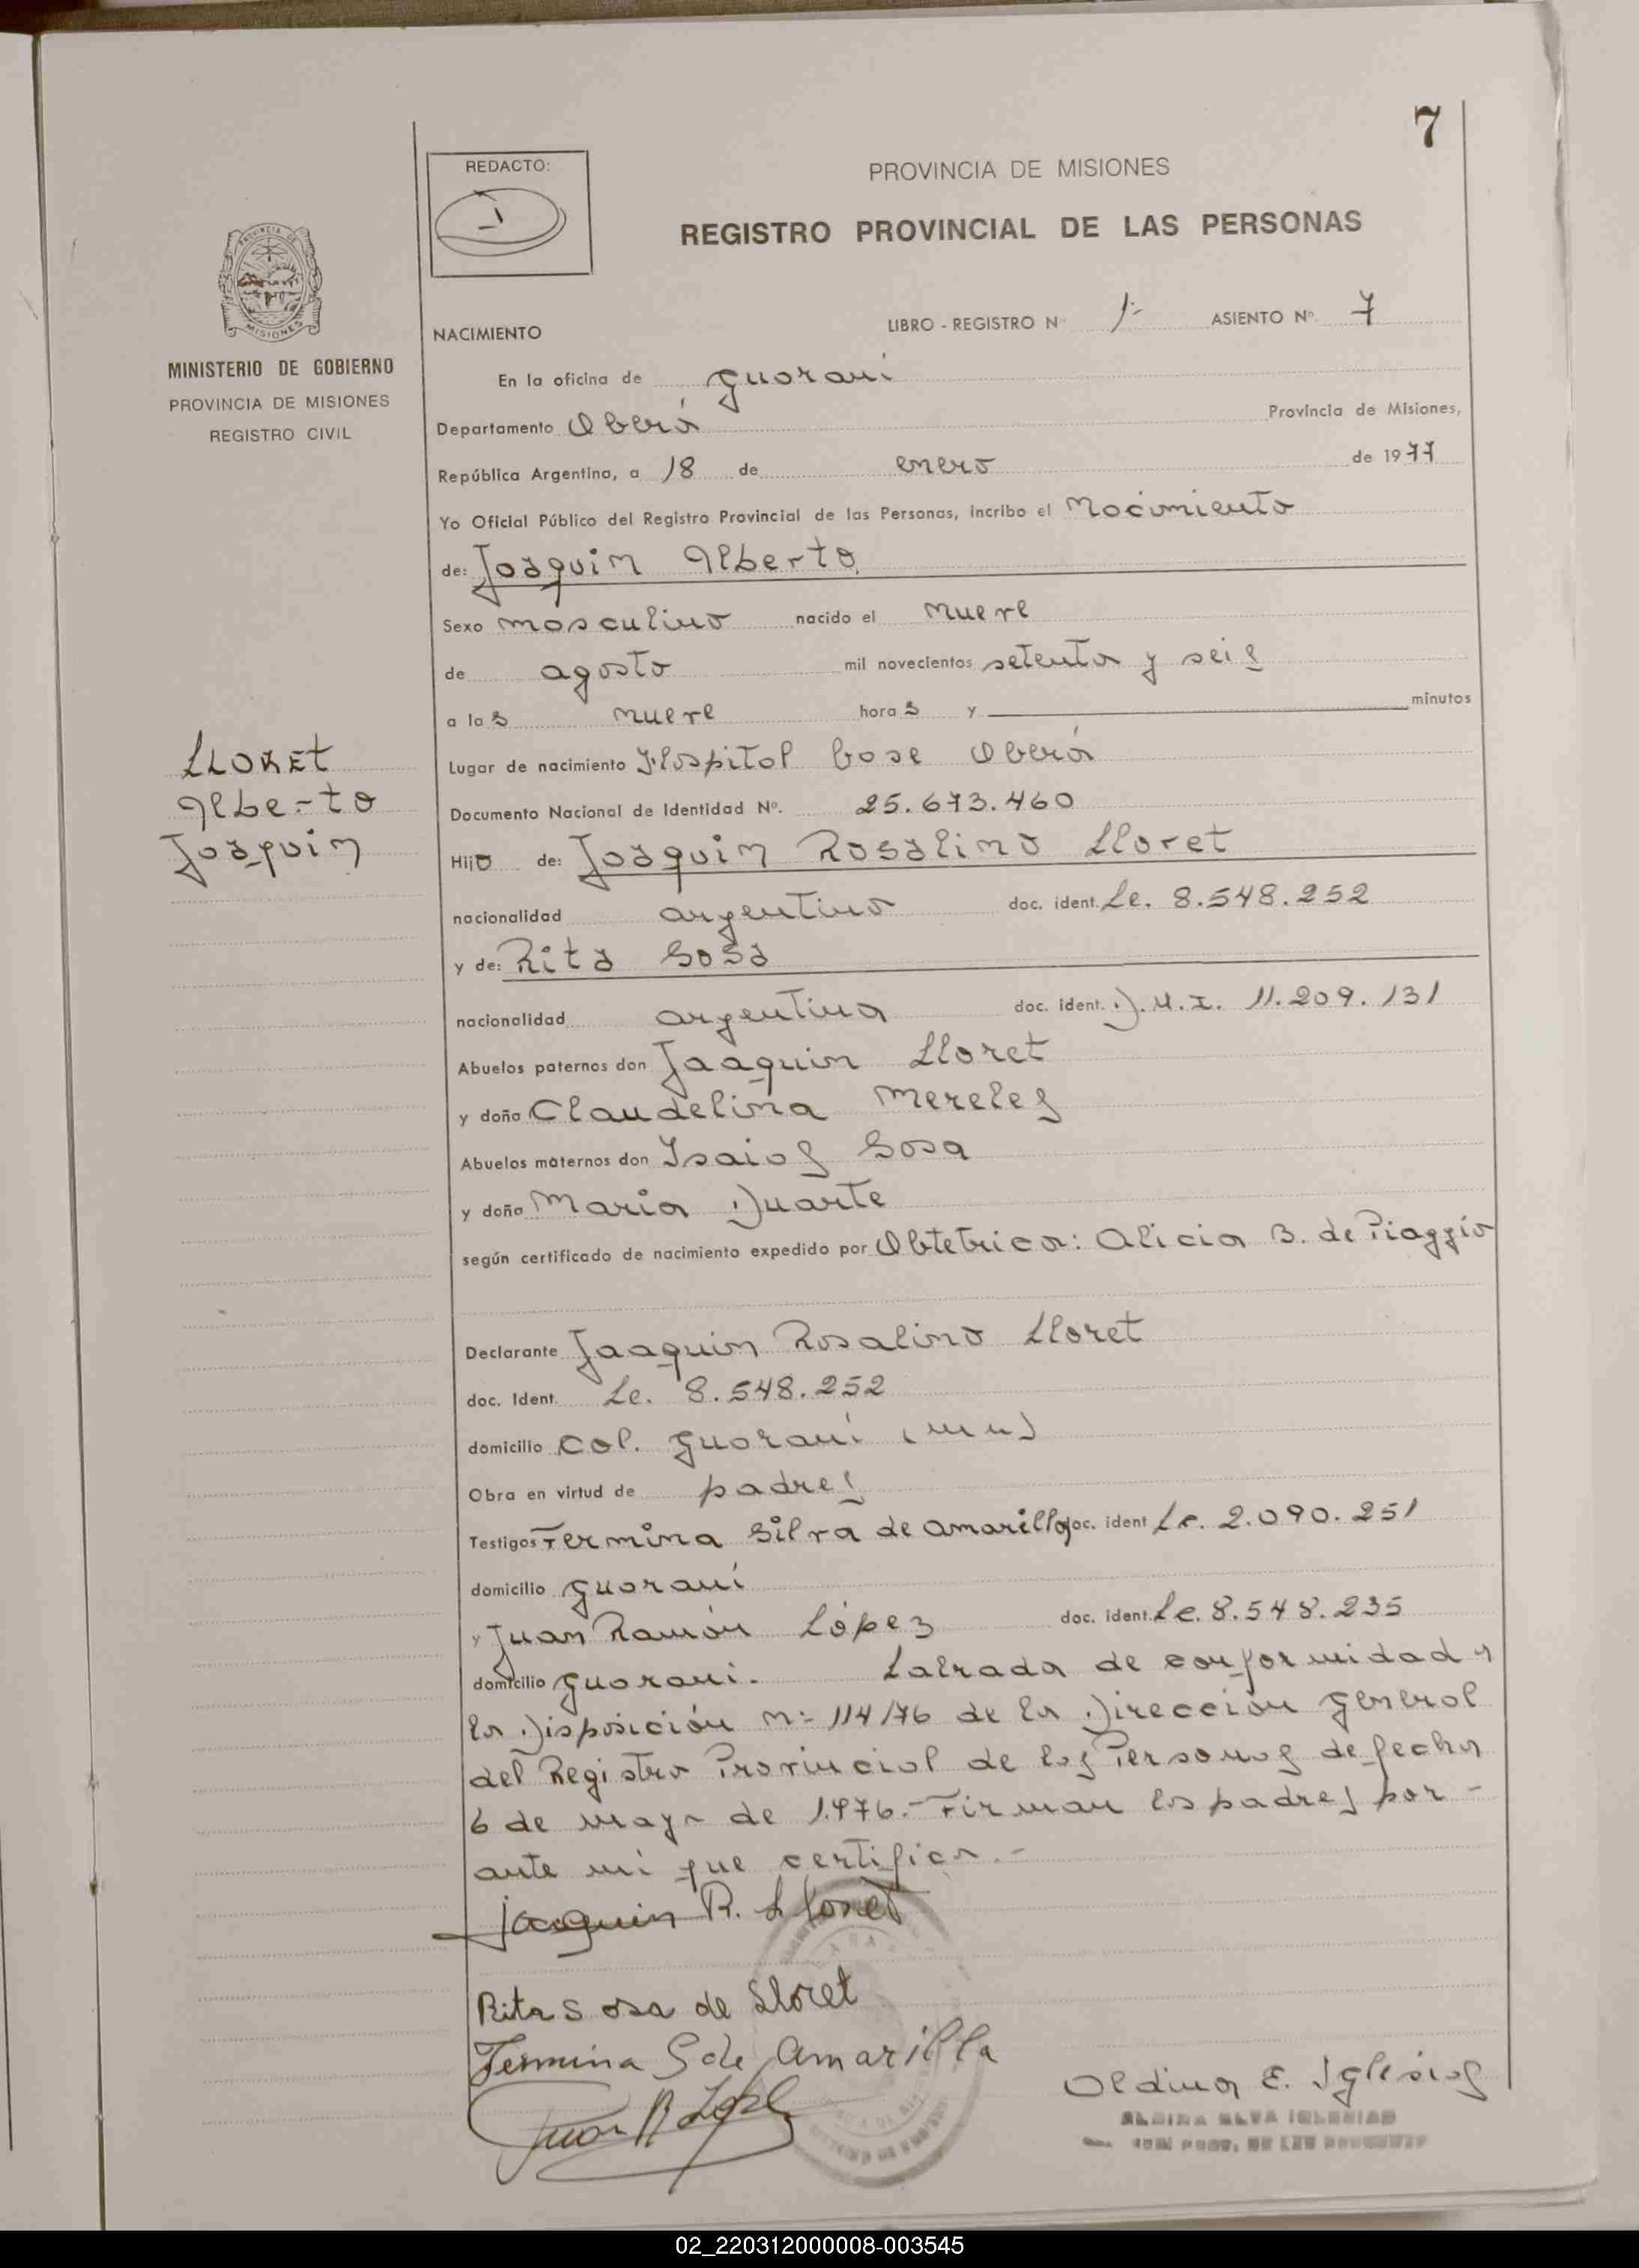 7
REDACTO:
PROVINCIA DE MISIONES
REGISTRO PROVINCIAL DE LAS PERSONAS
PROVINCIA DE
MISIONES
MINISTERIO DE GOBIERNO
PROVINCIA DE MISIONES
REGISTRO CIVIL
NACIMIENTO
LIBRO - REGISTRO Nº 1º ASIENTO Nº 7
En la oficina de Guaraní
Departamento Oberá Provincia de Misiones,
República Argentina, a 18 de enero de 1977
Yo Oficial Público del Registro Provincial de las Personas, incribo el Nacimiento
de: Joaquin Alberto
Sexo masculino nacido el nueve
de agosto mil novecientos setenta y seis
a las nueve horas y minutos
Lugar de nacimiento Hospital base Oberá
Documento Nacional de Identidad Nº. 25.673.460
Hijo de: Joaquin Rosalino Lloret
nacionalidad argentino doc. ident. Le. 8.548.252
y de: Rita Sosa
nacionalidad argentina doc. ident. D.N.I. 11.209.131
Abuelos paternos don Joaquin Lloret
y doña Claudelina Mereles
Abuelos maternos don Isaias Sosa
y doña Maria Duarte
según certificado de nacimiento expedido por Obtetrica: Alicia B. de Piaggio
Declarante Joaquin Rosalino Lloret
doc. Ident. Le. 8.548.252
domicilio Col. Guaraní (mn)
Obra en virtud de padres
Testigos Fermina Silva de Amarilla doc. ident Lc. 2.090.251
domicilio Guaraní
y Juan Ramón López doc. ident. Le. 8.548.235
domicilio Guarani. Labrada de conformidad a
la Disposición nº 114/76 de la Dirección General
del Registro Provincial de las Personas de fecha
6 de mayo de 1.976.- Firman los padres por -
ante mí que certifica.-
LLORET
Alberto
Joaquin
Joaquin R. Lloret
Rita Sosa de Lloret
Fermina S de Amarilla
Juan R Lopez
Aldina E. Iglesias
02_220312000008-003545